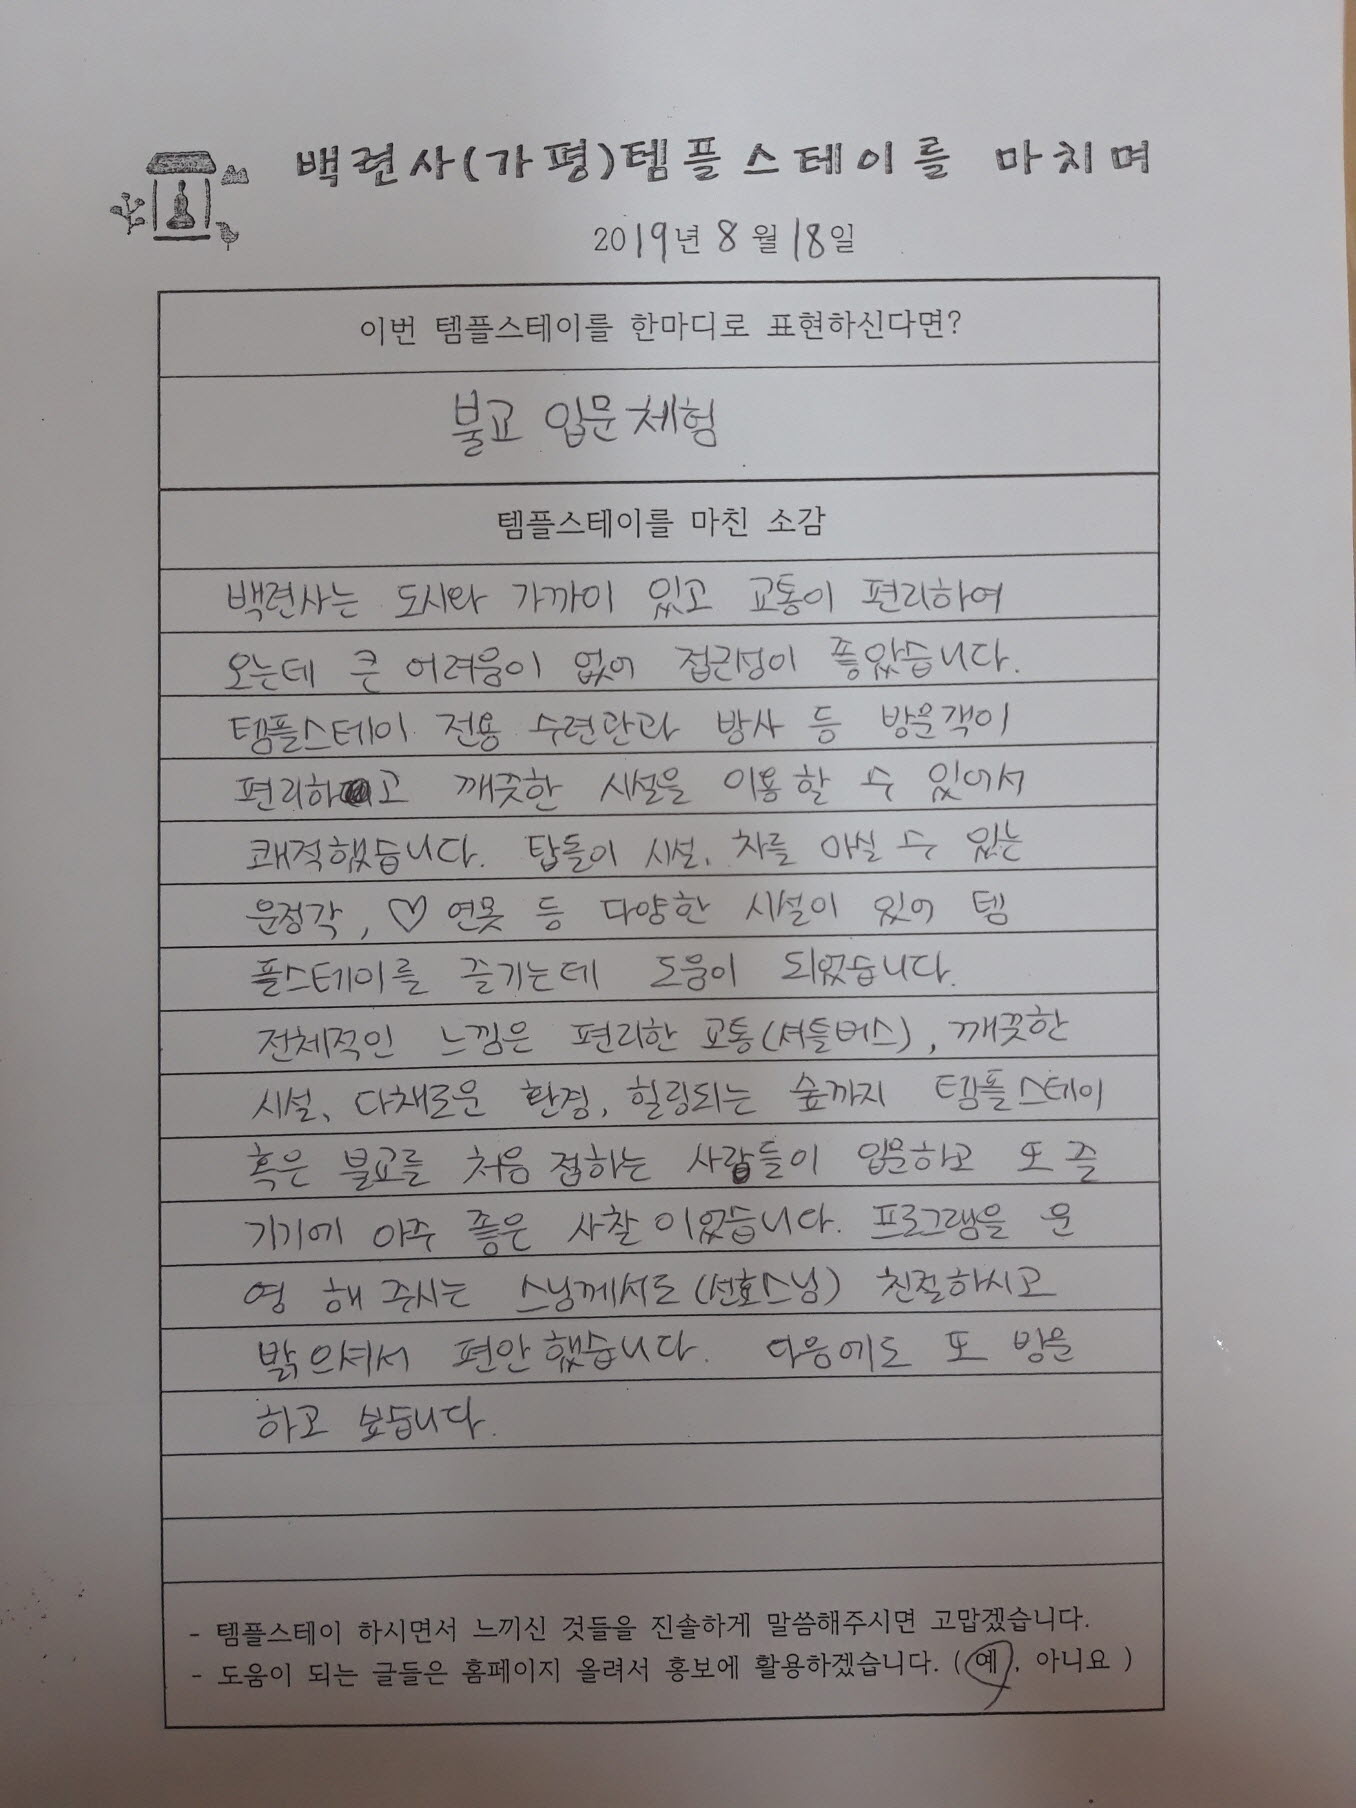 백련사(가평)템플스테이를 마치며
2019년 8월 18일
이번 템플스테이를 한마디로 표현하신다면?
불교 입문체험
템플스테이를 마친 소감
백련사는 도시와 가까이 있고 교통이 편리하여
오는데 큰 어려움이 없어 접근성이 좋았습니다.
템플스테이 전용 수련관과 방사 등 방문객이
편리하고 깨끗한 시설을 이용할 수 있어서
쾌적했습니다. 탑돌이 시설, 차를 마실 수 있는
운정각, ♡ 연못 등 다양한 시설이 있어 템
플스테이를 즐기는데 도움이 되었습니다.
전체적인 느낌은 편리한 교통(셔틀버스), 깨끗한
시설, 다채로운 환경, 힐링되는 숲까지 템플스테이
혹은 불교를 처음 접하는 사람들이 입문하고 또 즐
기기에 아주 좋은 사찰이었습니다. 프로그램을 운
영 해 주시는 스님께서도 (선호스님) 친절하시고
밝으셔서 편안했습니다. 다음에도 또 방문
하고 싶습니다.
- 템플스테이 하시면서 느끼신 것들을 진솔하게 말씀해주시면 고맙겠습니다.
- 도움이 되는 글들은 홈페이지 올려서 홍보에 활용하겠습니다. ( 예, 아니요 )